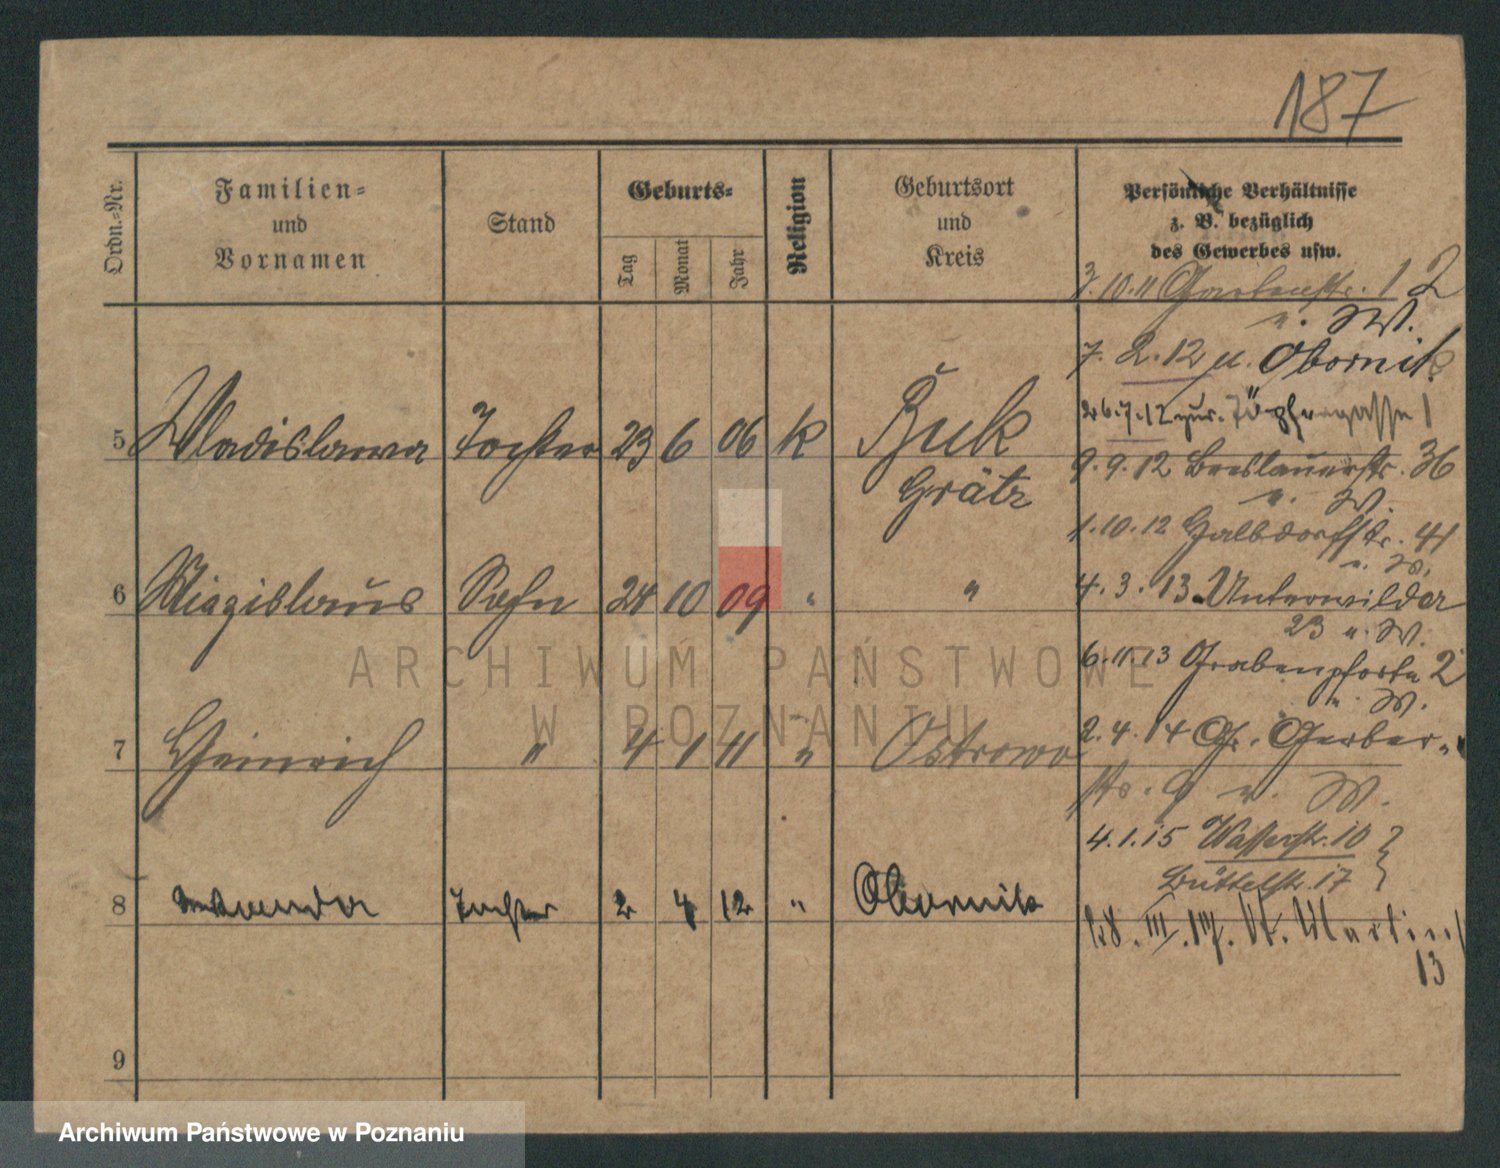 187
Ordn.-Nr.
Familien-
und
Vornamen
Stand
Geburts-
Tag
Monat
Jahr
Religion
Geburtsort
und
Kreis
Persönliche Verhältnisse
z. B. bezüglich
des Gewerbes usw.
3.10.11 Gartenstr. 12
u. W.
7. 2. 12 u. Obornik
5 Wladislawa Tochter 23 6 06 k Buk
Grätz
26.7.12 zur. Töpfergasse 1
9. 9. 12 Breslauerstr. 36
u. W.
1. 10. 12 Halbdorfstr. 41
u. W.
6 Miezislaus Sohn 24 10 09 " "
4. 3. 13 Unterwilda
23 u. W.
6.11.13 Grabenpforte 2
u. W.
7 Heinrich " 4 1 11 " Ostrowo
2. 4. 14 Gr. Gerber-
str. 9 u. W.
4. 1. 15 Wasserstr. 10
Büttelstr. 17
8 Tochter 2 4 12 " Obornik
St. Martin
13
9
ARCHIWUM PAŃSTWOWE
W POZNANIU
Archiwum Państwowe w Poznaniu